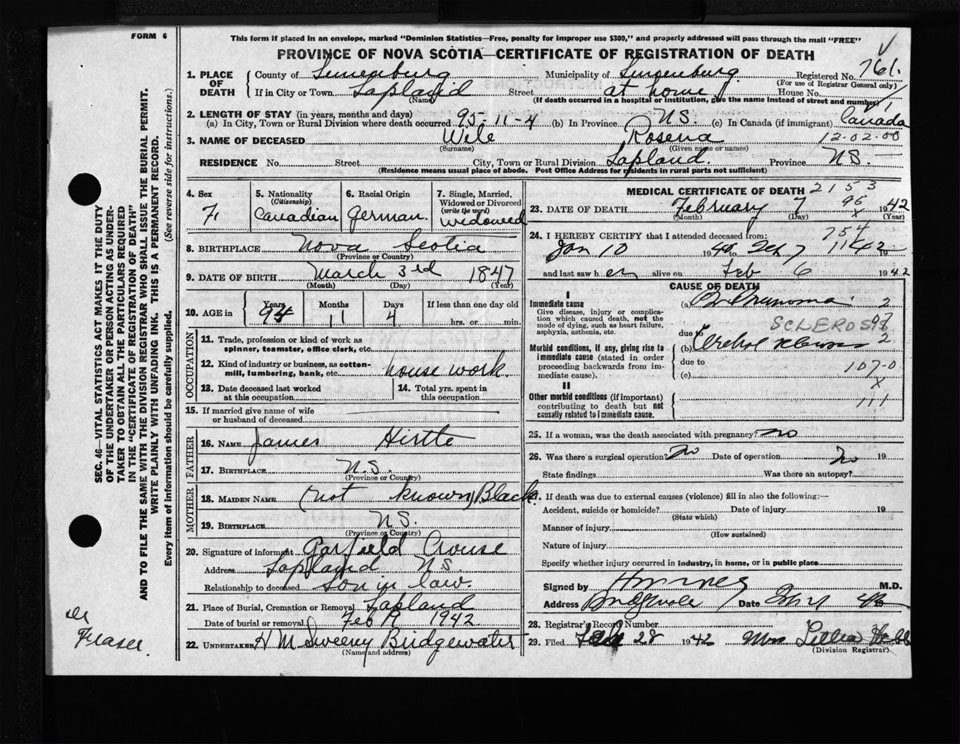 FORM 6
This form if placed in an envelope, marked "Dominion Statistics—Free, penalty for improper use $300," and properly addressed will pass through the mail "FREE"
PROVINCE OF NOVA SCOTIA—CERTIFICATE OF REGISTRATION OF DEATH
SEC. 46—VITAL STATISTICS ACT MAKES IT THE DUTY
OF THE UNDERTAKER OR PERSON ACTING AS UNDER-
TAKER TO OBTAIN ALL THE PARTICULARS REQUIRED
IN THE "CERTIFICATE OF REGISTRATION OF DEATH"
AND TO FILE THE SAME WITH THE DIVISION REGISTRAR WHO SHALL ISSUE THE BURIAL PERMIT.
WRITE PLAINLY WITH UNFADING INK. THIS IS A PERMANENT RECORD.
Every item of information should be carefully supplied. (See reverse side for instructions.)
1. PLACE OF DEATH County of Lunenburg Municipality of Lunenburg Registered No. 761.
(For use of Registrar General only)
If in City or Town Lapland Street at home House No.
(Name) (If death occurred in a hospital or institution, give the name instead of street and number)
2. LENGTH OF STAY (in years, months and days)
(a) In City, Town or Rural Division where death occurred 95-11-4 (b) In Province N.S. (c) In Canada (if immigrant) Canada
3. NAME OF DECEASED Wile Rosena 12-02-00
(Surname) (Given name or names)
RESIDENCE No. Street City, Town or Rural Division Lapland. Province N.S.
(Residence means usual place of abode. Post Office Address for residents in rural parts not sufficient)
4. Sex F.
5. Nationality (Citizenship) Canadian
6. Racial Origin German
7. Single, Married, Widowed or Divorced (write the word) widowed
8. BIRTHPLACE Nova Scotia
(Province or Country)
9. DATE OF BIRTH March 3rd 1847
(Month) (Day) (Year)
10. AGE in Years 94 Months 11 Days 4 If less than one day old hrs. or min.
OCCUPATION
11. Trade, profession or kind of work as spinner, teamster, office clerk, etc.
12. Kind of industry or business, as cotton-mill, lumbering, bank, etc. house work.
13. Date deceased last worked at this occupation
14. Total yrs. spent in this occupation
15. If married give name of wife or husband of deceased
FATHER
16. NAME James Hirtle
17. BIRTHPLACE N.S.
(Province or Country)
MOTHER
18. MAIDEN NAME (not known) Black
19. BIRTHPLACE N.S.
(Province or Country)
20. Signature of informant Garfield Crouse
Address Lapland N.S.
Relationship to deceased Son in law.
21. Place of Burial, Cremation or Removal Lapland
Date of burial or removal Feb 19 1942
22. UNDERTAKER H M Sweeny Bridgewater
(Name and address)
Fraser.
MEDICAL CERTIFICATE OF DEATH 2153
23. DATE OF DEATH February 7 1942
(Month) (Day) (Year)
24. I HEREBY CERTIFY that I attended deceased from:
Jan 10 Feb 7
and last saw her alive on Feb 6 1942
CAUSE OF DEATH
I
Immediate cause
Give disease, injury or complication which caused death, not the mode of dying, such as heart failure, asphyxia, asthenia, etc.
(a)
due to SCLEROSIS
Morbid conditions, if any, giving rise to immediate cause (stated in order proceeding backwards from immediate cause).
(b)
due to 107-0
(c)
II
Other morbid conditions (if important) contributing to death but not causally related to immediate cause.
111
25. If a woman, was the death associated with pregnancy? no
26. Was there a surgical operation? no Date of operation 19
State findings Was there an autopsy? no
27. If death was due to external causes (violence) fill in also the following:—
Accident, suicide or homicide? Date of injury 19
(State which)
Manner of injury
(How sustained)
Nature of injury
Specify whether injury occurred in industry, in home, or in public place
Signed by M.D.
Address Date
28. Registrar's Record Number
29. Filed 28 1942 Mrs
(Division Registrar)